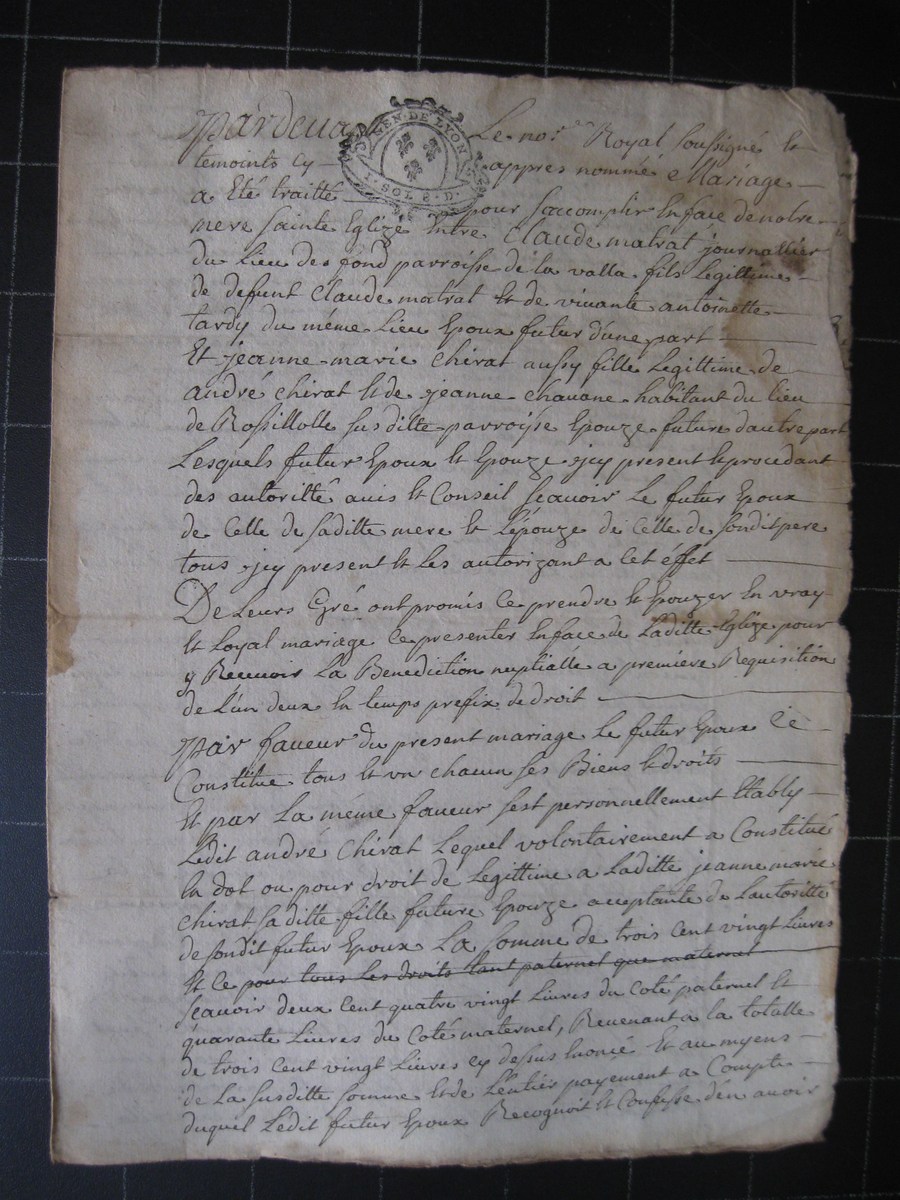 Pardevant Le no.re Royal soussigné et
GEN · DE LYON
1 · SOL 8 · D ·
temoints cy appres nommé Mariage
a Eté traitté pour saccomplir En face de notre
mere sainte Eglizé Entre Claude matrat journallier
du Lieu des fond parroisse de la valla fils Legittime
de defunt Claude matrat Et de vivante antoinette
tardy du méme Lieu Epoux futur d'une part
Et jeanne marie chirat aussy fille Legittime de
andré chirat Et de jeanne chavane habitant du lieu
de Rossillolle susditte parroisse Epouze future dautre part
Lesquels futur Epoux Et Epouze ycy present Et procedant
des autoritté avis Et Conseil scavoir Le futur Epoux
de Celle de saditte mere Et L'épouze de Celle de sondit pere
tous ycy present Et Les autorizant a Cet effet
De Leurs Gré ont promis Ce prendre Et Epouzer En vray
Et Loyal mariage Ce presenter En face de Laditte Eglize pour
y Recevoir La Benediction nuptialle a premiere Requisition
de L'un deux En temps prefix de droit
Par faveur du present mariage Le futur Epoux Ce
Constitue tous Et vn chacun ses Biens Et droits
Et par La méme faveur sest personnellement Etably
Ledit andré Chirat Lequel volontairement a Constitué
En dot ou pour droit de Legittime a Laditte jeanne marie
Chirat saditte fille future Epouze acceptante de Lautoritté
de sondit futur Epoux La somme de trois Cent vingt Livres
Et Ce pour tous Les droits tant paternel que maternel
scavoir deux Cent quatre vingt Livres du Coté paternel Et
quarante Livres du Coté maternel, Revenant a la totalle
de trois Cent vingt Livres cy dessus Enoncé Et au myens
de La susditte somme Et de L'entier payement a Compte
duquel Ledit futur Epoux Recognoit Et Confesse d'en avoir